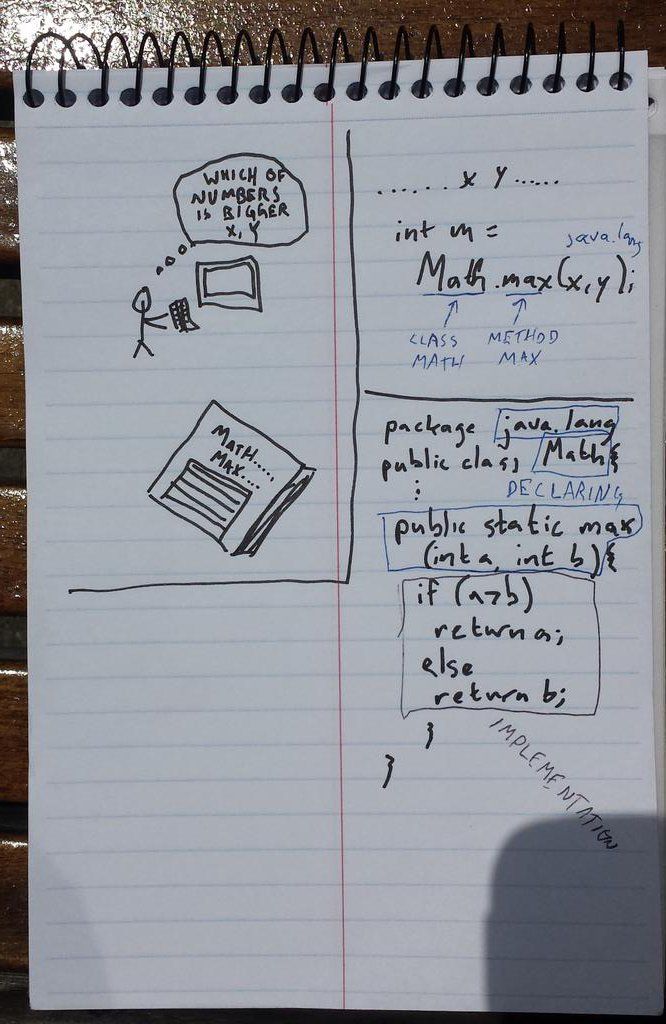 WHICH OF
NUMBERS
IS BIGGER
X, Y
MATH.....
MAX....
...... x y ......
int m =
java.lang
Math.max(x,y);
CLASS METHOD
MATH MAX
package java.lang
public class Math{
:
DECLARING
public static max
(int a, int b){
if (a>b)
return a;
else
return b;
}
}
IMPLEMENTATION